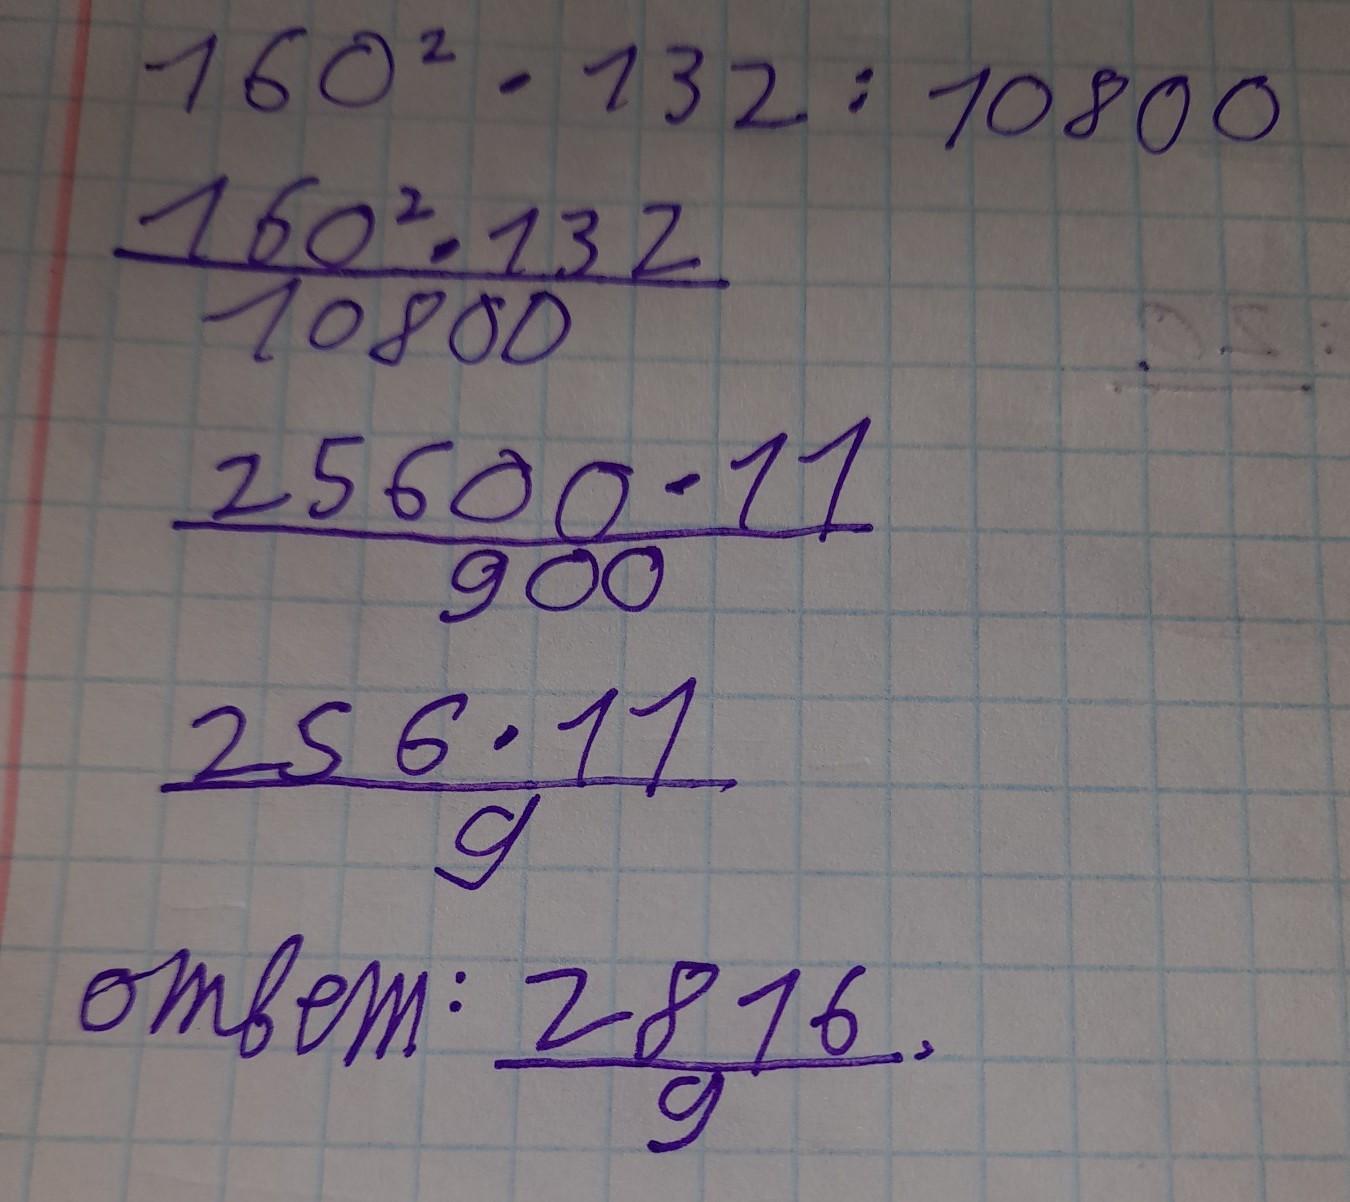 160² · 132 : 10800
160² · 132
10800
25600 · 11
900
256 · 11
9
ответ: 2816.
9